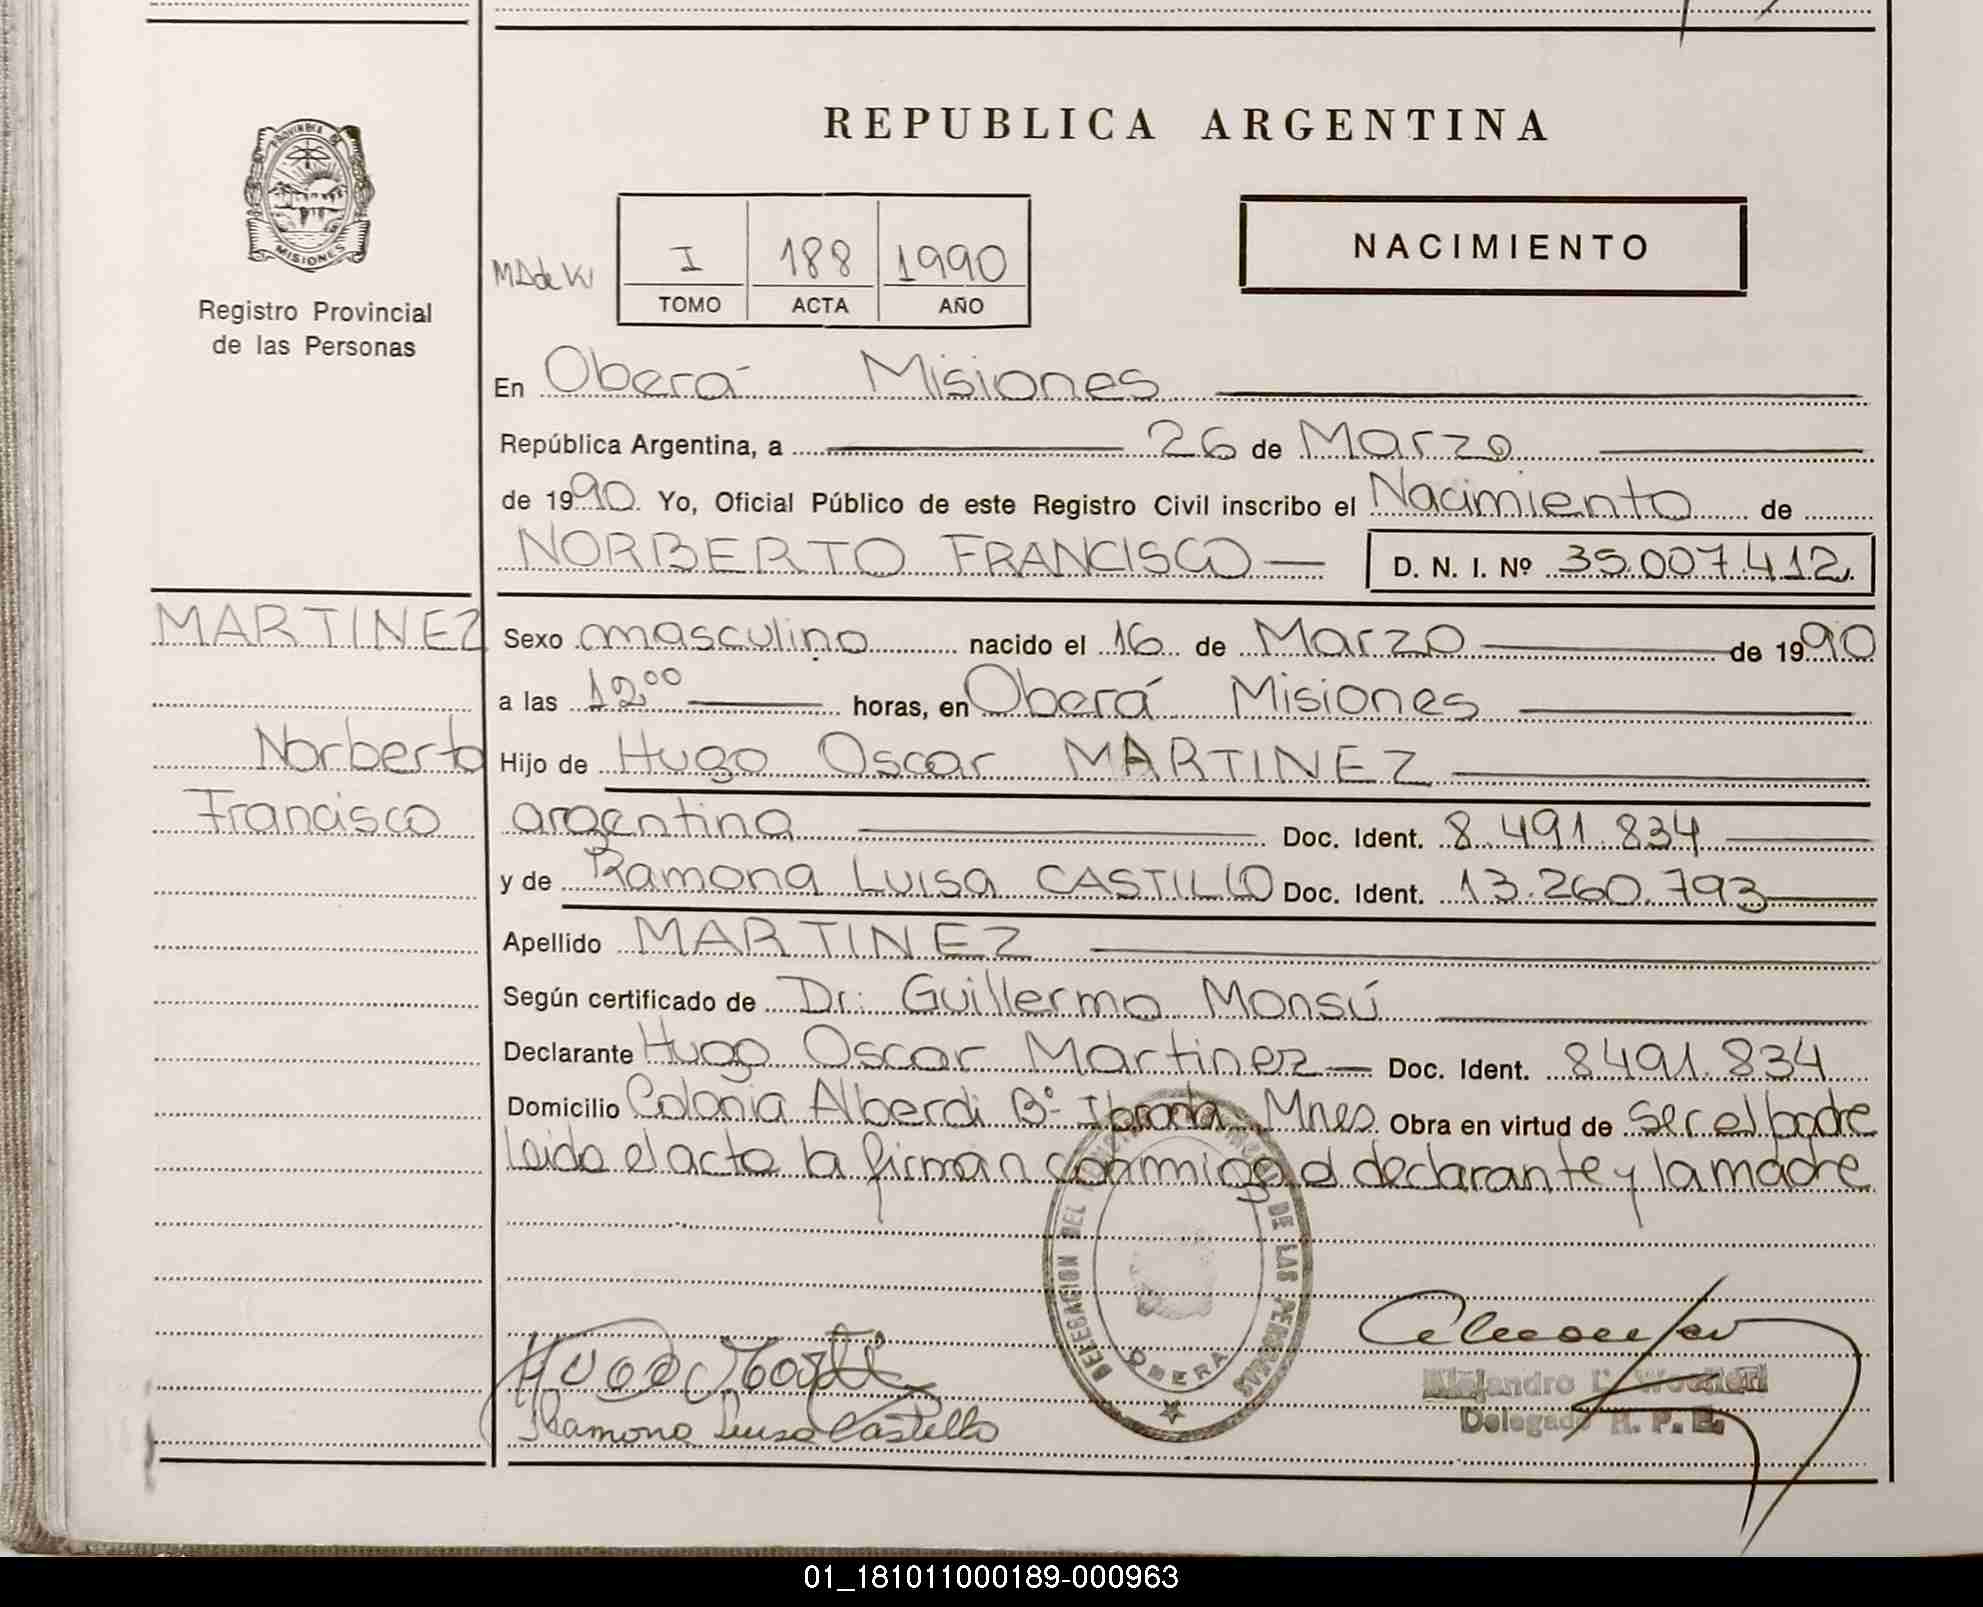 REPUBLICA ARGENTINA
PROVINCIA DE MISIONES
Registro Provincial
de las Personas
I 188 1990
TOMO ACTA AÑO
NACIMIENTO
En Oberá Misiones
República Argentina, a 26 de Marzo
de 1990. Yo, Oficial Público de este Registro Civil inscribo el Nacimiento de
NORBERTO FRANCISCO D. N. I. Nº 35.007.412
MARTINEZ
Norberto
Francisco
Sexo masculino nacido el 16 de Marzo de 1990
a las 12,00 horas, en Oberá Misiones
Hijo de Hugo Oscar MARTINEZ
argentina Doc. Ident. 8.491.834
y de Ramona Luisa CASTILLO Doc. Ident. 13.260.793
Apellido MARTINEZ
Según certificado de Dr: Guillermo Monsú
Declarante Hugo Oscar Martinez Doc. Ident. 8491.834
Domicilio Colonia Alberdi Bº Mnes. Obra en virtud de ser el padre
leido el acta la firman conmigo el declarante y la madre
DELEGACION DEL DE LAS PERSONAS
OBERA
Hugo Marti
Ramona Luisa Castillo
Alejandro
Delegado R. P. P.
01_181011000189-000963